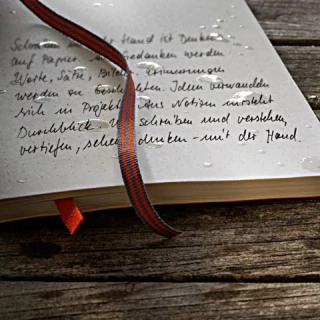 Schreiben mit der Hand ist Denken
auf Papier. Gedanken werden
Worte, Sätze, Bilder. Erinnerungen
werden zu Geschichten. Ideen verwandeln
sich in Projekte. Aus Notizen entsteht
Durchblick. Wir schreiben und verstehen,
vertiefen, sehen, denken - mit der Hand.